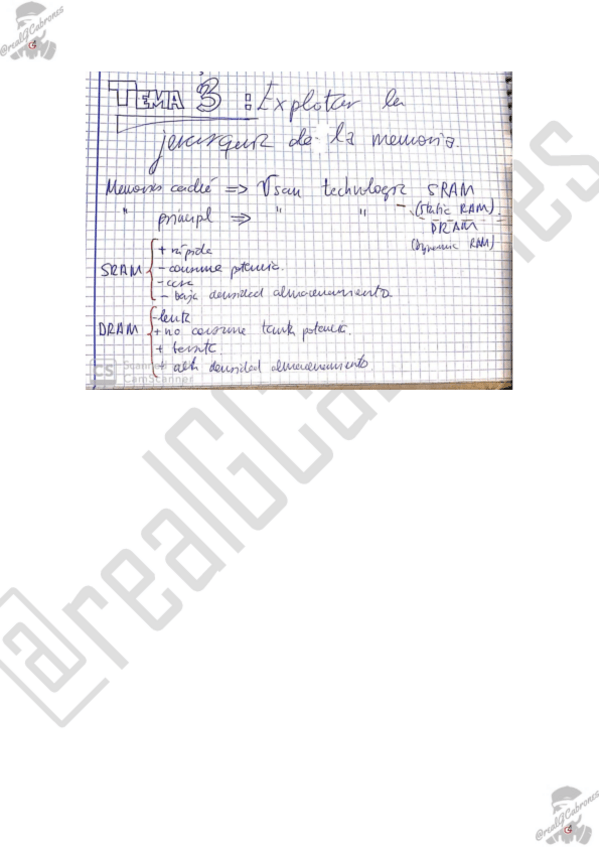 @realGCabrones
TEMA 3 : Explotar la
jerarquía de la memoria.
Memorias caché => Usan technología SRAM
(Static RAM).
" principal => " " DRAM
(Dynamic RAM)
SRAM
+ rápida
- consume potencia.
- cara
- baja densidad almacenamiento
DRAM
- lenta
+ no consume tanta potencia.
+ barata.
+ alta densidad almacenamiento
CS Scanned with
CamScanner
@realGCabrones
@realGCabrones